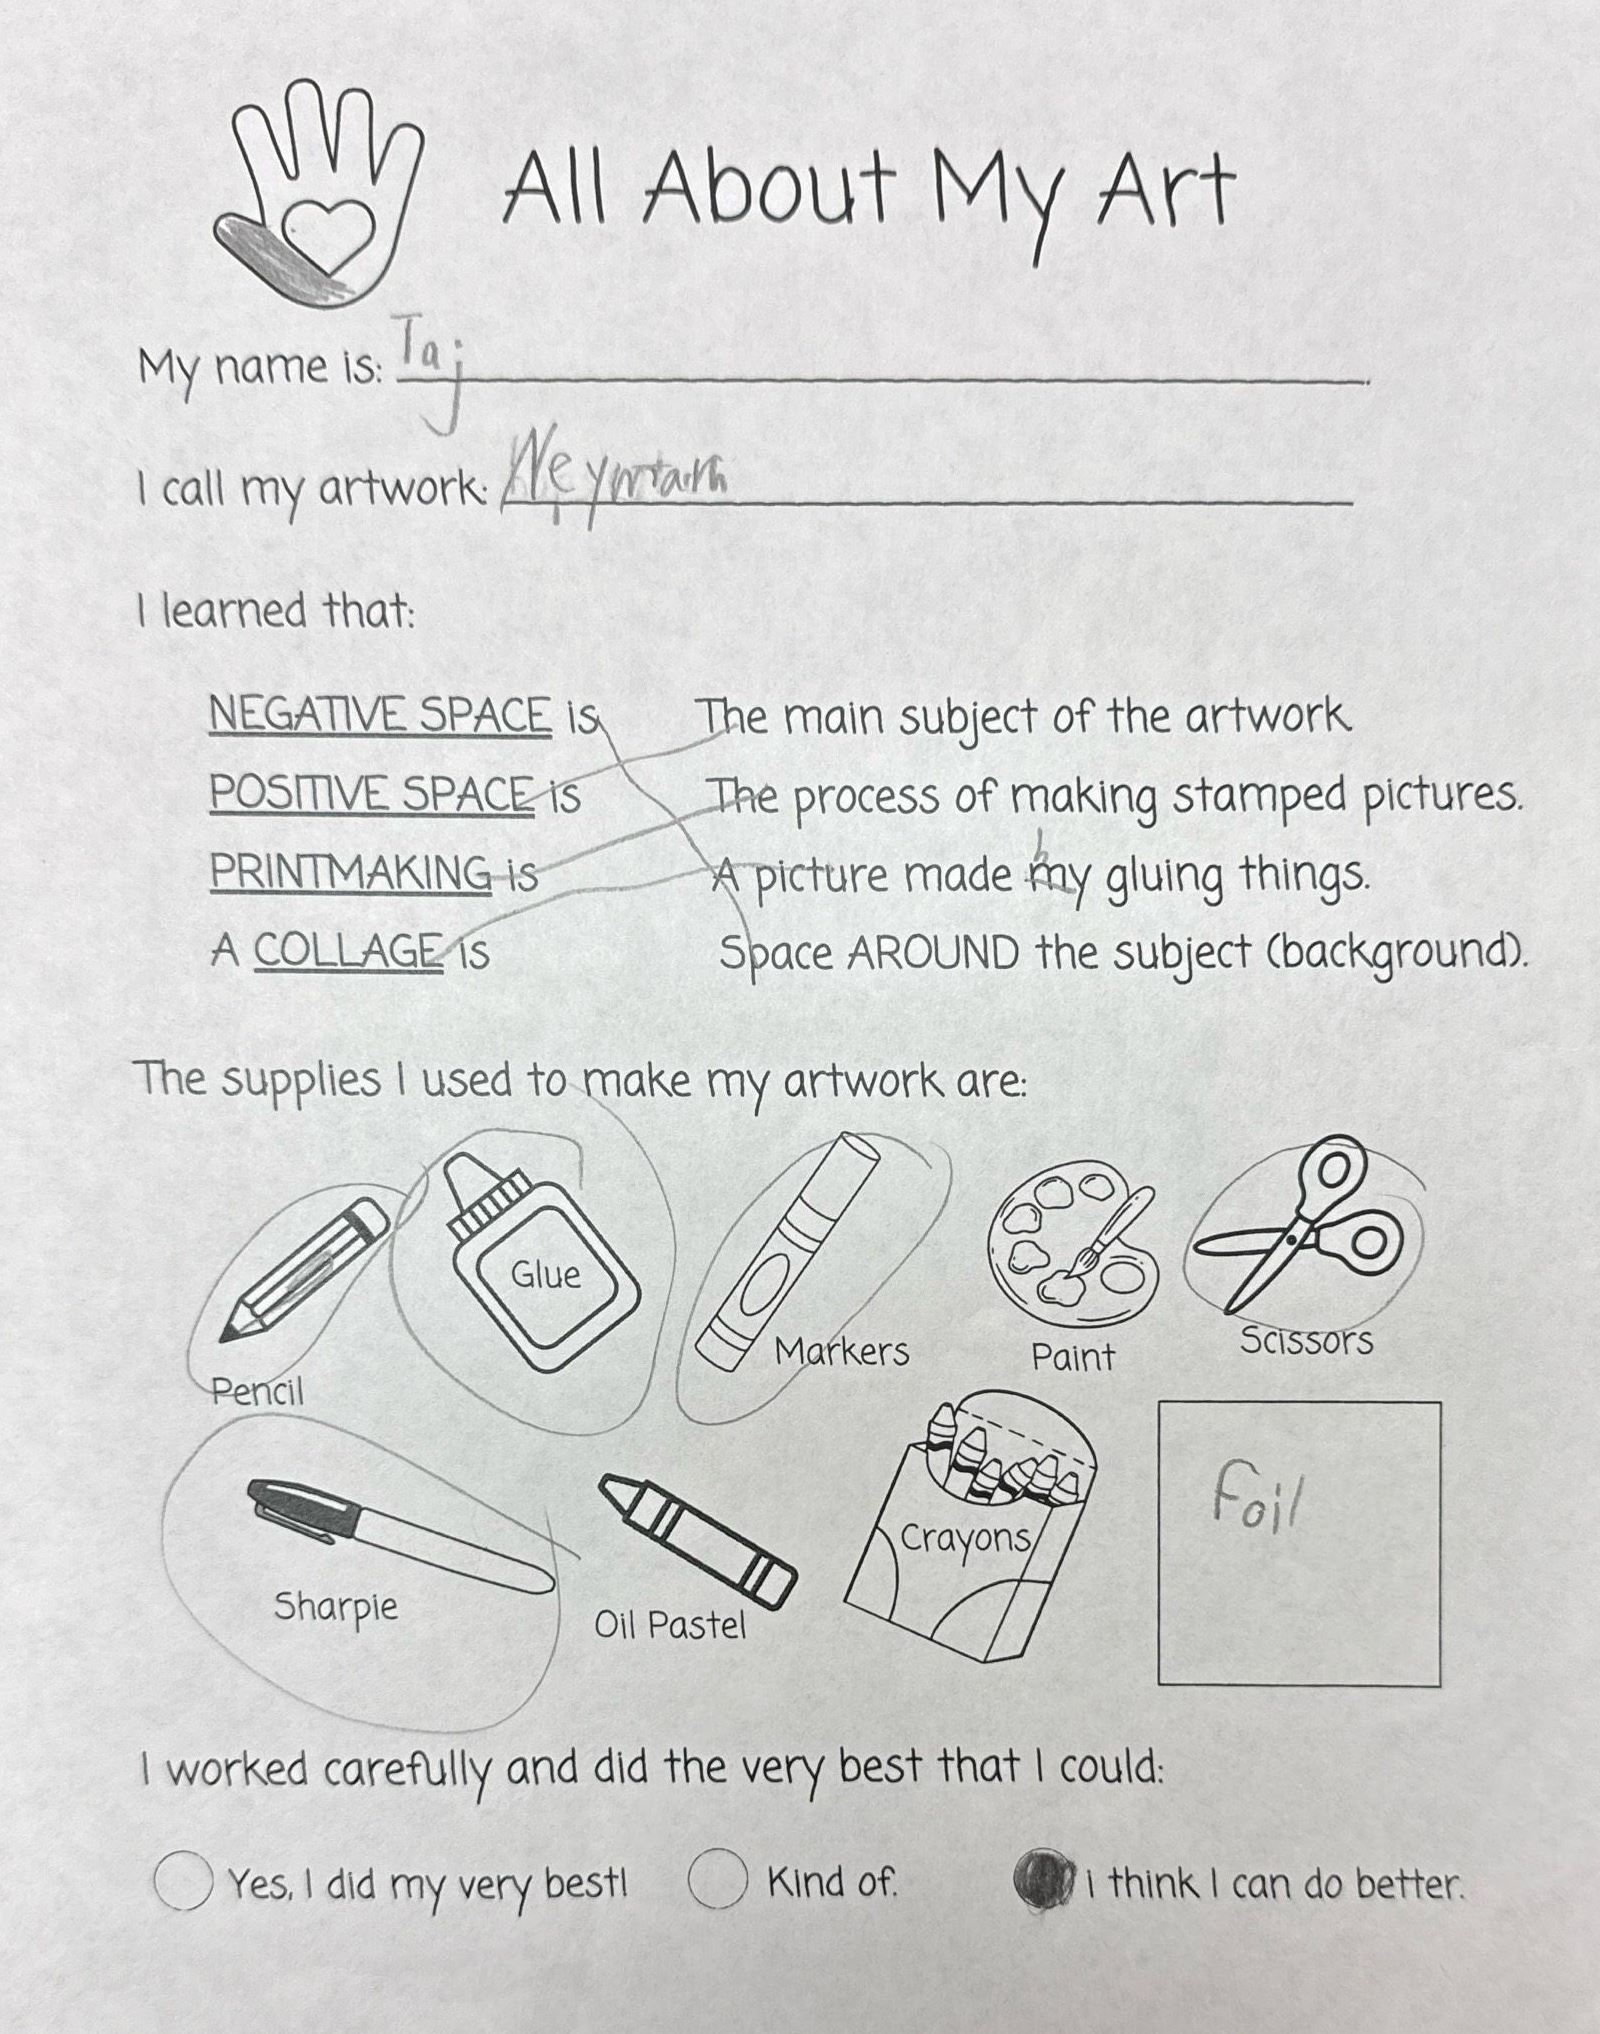 All About My Art
My name is: Taj
I call my artwork:
I learned that:
NEGATIVE SPACE is The main subject of the artwork
POSITIVE SPACE is The process of making stamped pictures.
PRINTMAKING is A picture made my gluing things.
b
A COLLAGE is Space AROUND the subject (background).
The supplies I used to make my artwork are:
Glue
Markers
Paint
Scissors
Pencil
Sharpie
Oil Pastel
Crayons
Foil
I worked carefully and did the very best that I could:
Yes, I did my very best! Kind of. I think I can do better.